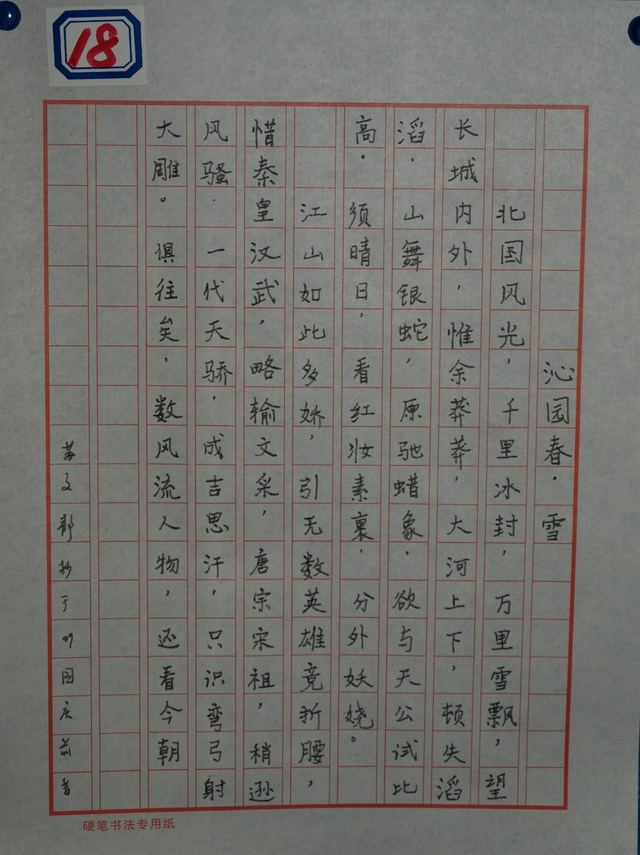 18
沁园春·雪
北国风光，千里冰封，万里雪飘，望
长城内外，惟余莽莽，大河上下，顿失滔
滔．山舞银蛇，原驰蜡象，欲与天公试比
高．须晴日，看红妆素裹．分外妖娆。
江山如此多娇，引无数英雄竞折腰，
惜秦皇汉武，略输文采，唐宗宋祖，稍逊
风骚．一代天骄，成吉思汗，只识弯弓射
大雕。俱往矣，数风流人物，还看今朝
文 抄于 国庆前
硬笔书法专用纸